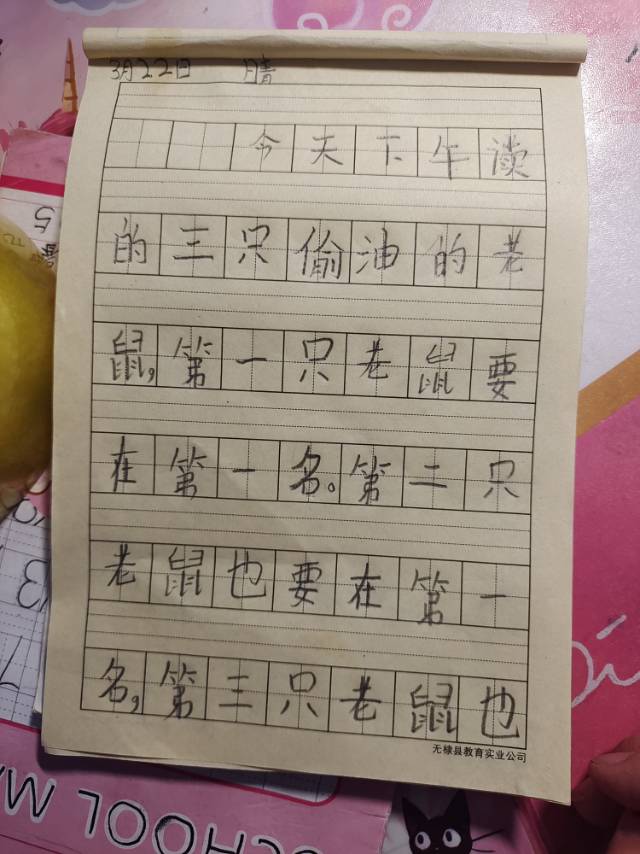 3月22日 晴
今天下午读
的三只偷油的老
鼠,第一只老鼠要
在第一名。第二只
老鼠也要在第一
名,第三只老鼠也
无棣县教育实业公司
5
3
7
SCHOOL MA